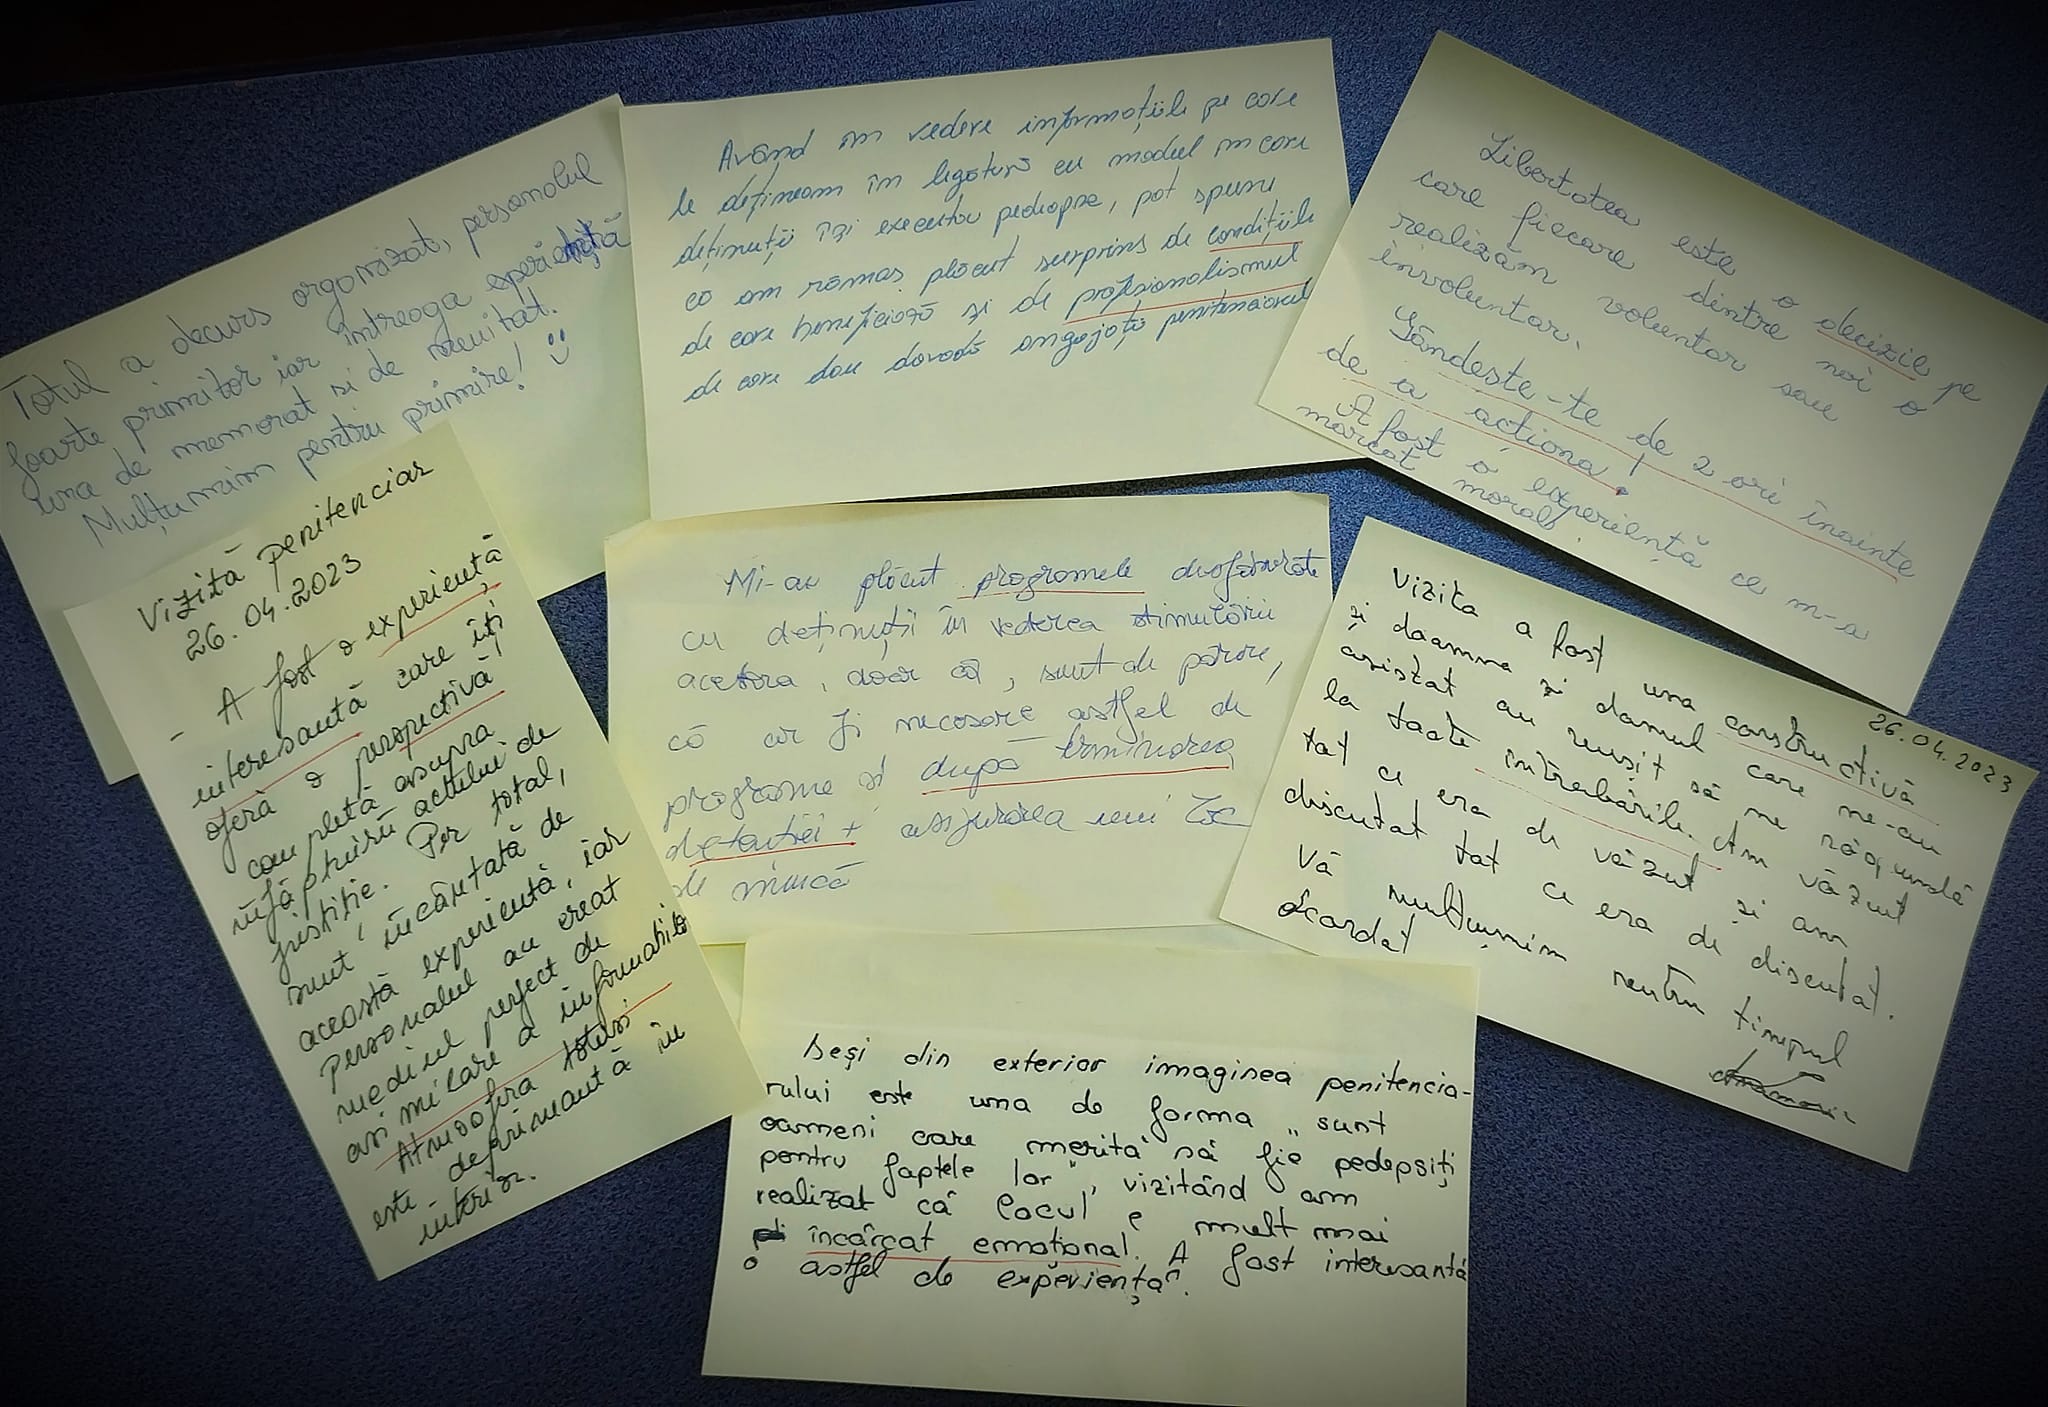 Totul a decurs organizat, personalul
foarte primitor iar întreaga experiență
una de memorat si de neuitat.
Mulțumim pentru primire! :)
Având în vedere informațiile pe care
le dețineam în legătură cu modul în care
deținuții își execută pedeapsa, pot spune
că am rămas plăcut surprins de condițiile
de care beneficiază și de profesionalismul
de care dau dovadă angajații penitenciarului
Libertatea este o decizie pe
care fiecare dintre noi o
realizăm voluntar sau
involuntar.
Gândeste-te de 2 ori înainte
de a acționa!
A fost o experiență ce m-a
marcat moral!
Vizită penitenciar
26.04.2023
- A fost o experiență
interesantă care îți
oferă o perspectivă
completă asupra
înfăptuirii actului de
justiție. Per total,
sunt încântată de
această experiență, iar
personalul au creat
mediul perfect de
asimilare a informatiilor
Atmosfera totusi
este deprimantă în
interior.
Mi-au plăcut programele desfășurate
cu deținuții în vederea stimulării
acestora, doar că, sunt de părere,
că ar fi necesare astfel de
programe și după terminarea
detenției + asigurarea unui loc
de muncă
26.04.2023
Vizita a fost una constructivă
și doamna și domnul care ne-au
asistat au reusit să ne răspundă
la toate întrebările. Am văzut
tot ce era de văzut și am
discutat tot ce era de discutat.
Vă mulțumim pentru timpul
acordat
Deși din exterior imaginea penitencia-
rului este una de forma „sunt
oameni care merită să fie pedepsiți
pentru faptele lor", vizitând am
realizat că locul e mult mai
încărcat emoțional. A fost interesantă
o astfel de experiență.